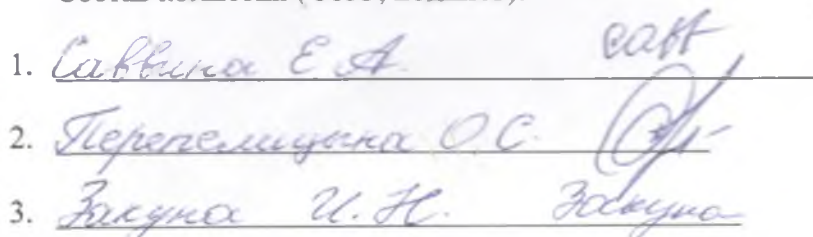 1. Саввина Е А. савв
2. Перепелицына О.С.
3. Закуна И.Н. Закуна